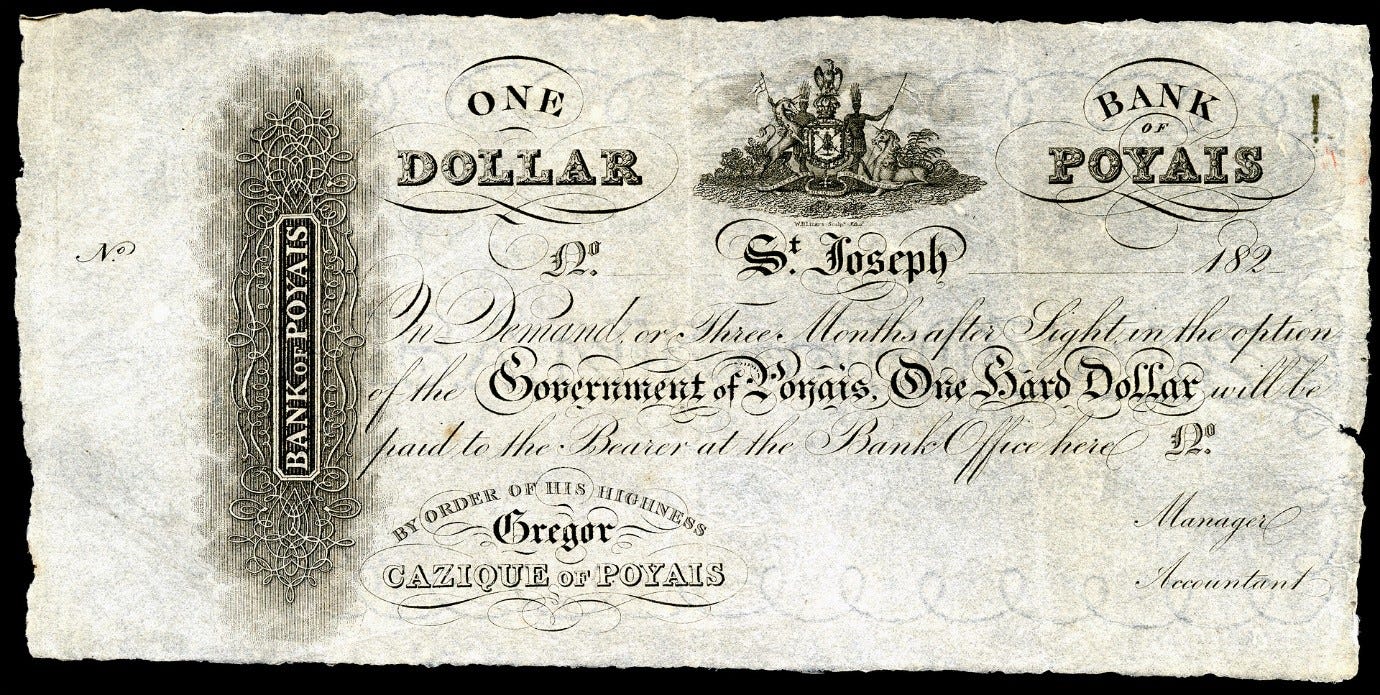 ONE
DOLLAR
BANK
OF
POYAIS
No.
No.
St. Joseph
182
BANK OF POYAIS
On Demand, or Three Months after Sight, in the option
of the Government of Poyais, One Hard Dollar will be
paid to the Bearer at the Bank Office here No.
BY ORDER OF HIS HIGHNESS
Gregor
CAZIQUE OF POYAIS
Manager
Accountant